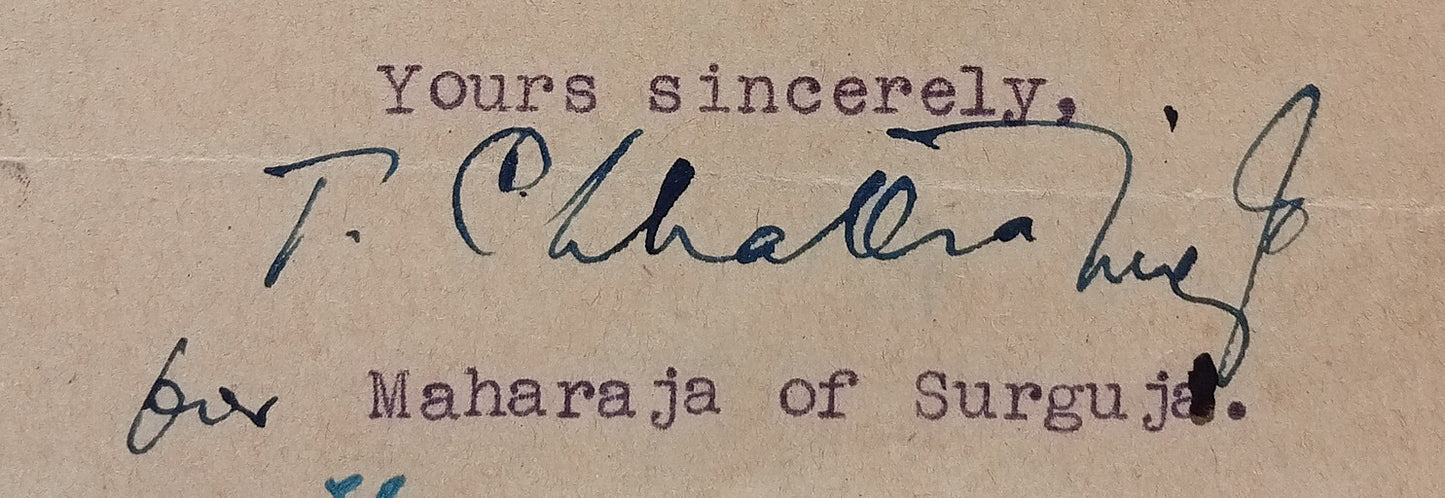 Yours sincerely,
T. Chhatra
for Maharaja of Surguja.